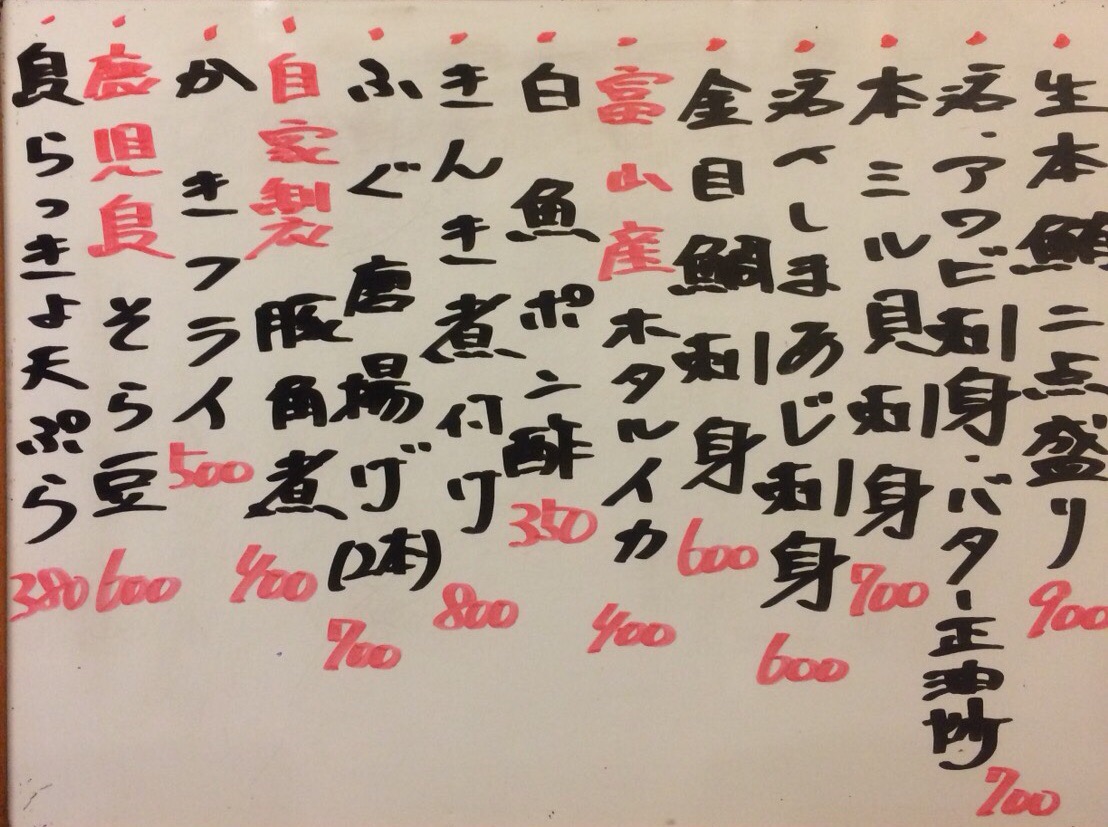 生本鮪二点盛り 900
活・アワビ刺身・バター正油炒 700
本ミル貝刺身 700
活〆しまあじ刺身 600
金目鯛刺身 600
富山産ホタルイカ 400
白魚ポン酢 350
きんき煮付け 800
ふぐ唐揚げ(2本) 700
自家製豚角煮 400
かきフライ 500
鹿児島そら豆 600
島らっきょ天ぷら 380